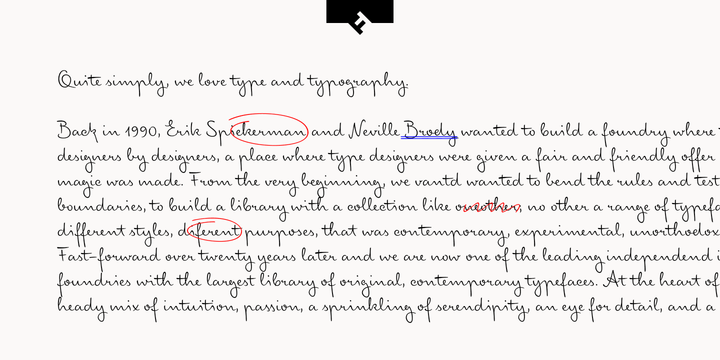 Quite simply, we love type and typography.
Back in 1990, Erik Spiekerman and Neville Brody wanted to build a foundry where
designers by designers, a place where type designers were given a fair and friendly offer
magic was made. From the very beginning, we vantd wanted to bend the rules and test
boundaries, to build a library with a collection like no other a range of typefa
different styles, diferent purposes, that was contemporary, experimental, unorthodox
Fast-forward over twenty years later and we are now one of the leading independent
foundries with the largest library of original, contemporary typefaces. At the heart of
heady mix of intuition, passion, a sprinkling of serendipity, an eye for detail, and a